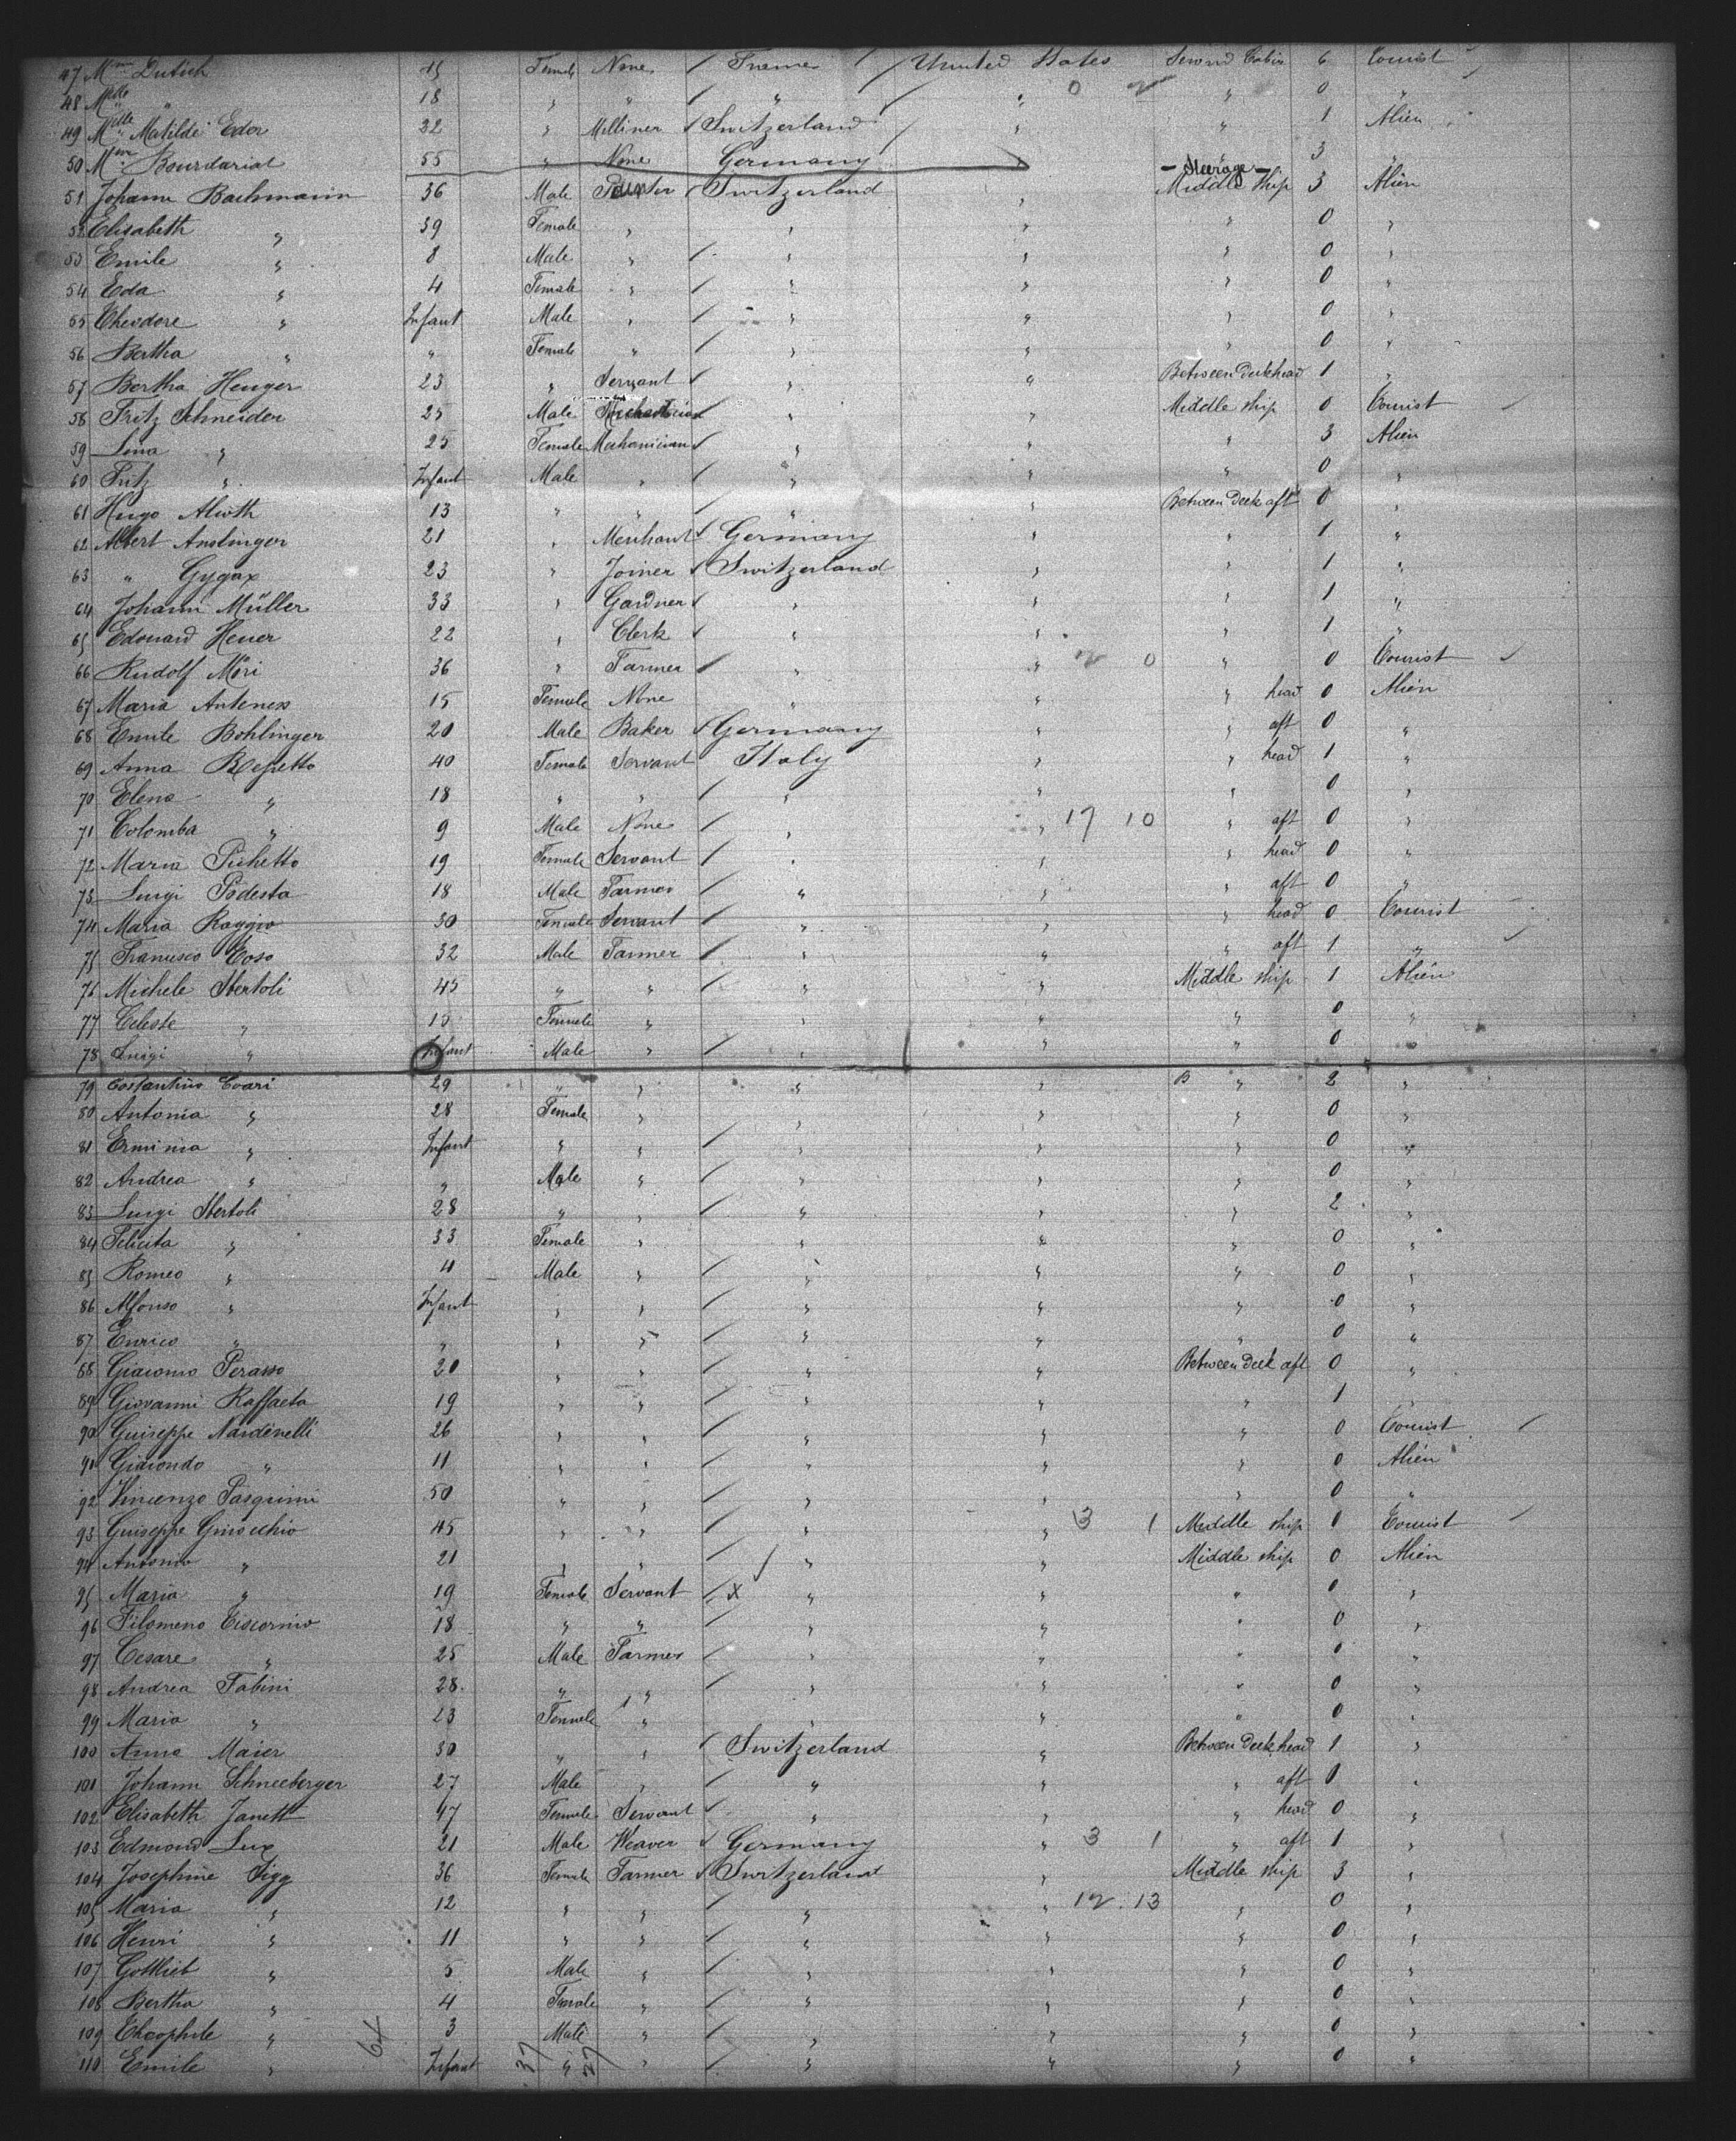 47 Mme Dutich 45 Female None / France / United States Second Cabin 6 Tourist
48 Melle " 18 " " / " / " 0 2 " 0 "
49 Melle Matilde Eder 32 " Milliner / Switzerland / " " 1 Alien
50 Mme Bourdariat 55 " None Germany " 3 "
- Steerage -
51 Johann Bachmann 36 Male / Switzerland " Middle ship 3 Alien
52 Elisabeth " 39 Female " " " " 0 "
53 Emile " 8 Male " / " " " 0 "
54 Eda " 4 Female " / " " " 0 "
55 Theodore " Infant Male " / " " " 0 "
56 Bertha " " Female " / " " " 0 "
57 Bertha Henger 23 " Servant / " " Between deck head 1 "
58 Fritz Schneider 25 Male " " Middle ship 0 Tourist
59 Lina " 25 Female Mechanician / " " " 3 Alien
60 Fritz " Infant Male " / " " " 0 "
61 Hugo Alioth 13 " " / " " Between deck aft 0 "
62 Albert Anslinger 21 " Merchant / Germany " " 1 "
63 " Gygax 23 " Joiner / Switzerland " " 1 "
64 Johann Müller 33 " Gardner / " " " 1 "
65 Edouard Heuer 22 " Clerk / " " " 1 "
66 Rudolf Möri 36 " Farmer / " " 2 0 " 0 Tourist
67 Maria Antenen 15 Female None " " " head 0 Alien
68 Emile Bohlinger 20 Male Baker / Germany " " aft 0 "
69 Anna Repetto 40 Female Servant Italy " " head 1 "
70 Elena " 18 " " / " " " 0 "
71 Colomba " 9 Male None / " " 17 10 " aft 0 "
72 Maria Pichetto 19 Female Servant / " " " head 0 "
73 Luigi Podesta 18 Male Farmer / " " " aft 0 "
74 Maria Raggio 30 Female Servant / " " " head 0 Tourist
75 Francesco Coso 32 Male Farmer / " " " aft 1 "
76 Michele Sbertoli 45 " " / " " Middle ship 1 Alien
77 Celeste " 15 Female " " " " 0 "
78 Luigi " Infant Male " / " " " 0 "
79 Costantino Cvari 29 " " " " B " 2 "
80 Antonia " 28 Female " " " " 0 "
81 Erminia " Infant " " / " " " 0 "
82 Andrea " " Male " / " " " 0 "
83 Luigi Sbertoli 28 " " / " " " 2 "
84 Felicita " 33 Female " " " " 0 "
85 Romeo " 4 Male " / " " " 0 "
86 Alfonso " Infant " " / " " " 0 "
87 Enrico " " " " / " " " 0 "
88 Giacomo Perasso 20 " " / " " Between deck aft 0 "
89 Giovanni Raffaeta 19 " " / " " " 1 "
90 Guiseppe Nardinelli 26 " " / " " " 0 Tourist
91 Giocondo " 11 " " / " " " 0 Alien
92 Vincenzo Pasquini 50 " " / " " " 0 "
93 Guiseppe Ginocchio 45 " " / " " 3 1 Middle ship 1 Tourist
94 Antonio " 21 " " / " " Middle ship 0 Alien
95 Maria " 19 Female Servant / x " " " 0 "
96 Filomeno Ciscornio 18 " " / " " " 0 "
97 Cesare " 25 Male Farmer / " " " 0 "
98 Andrea Fabini 28 " " / " " " 0 "
99 Maria " 23 Female " " " " 0 "
100 Anna Maier 30 " " / Switzerland " Between deck head 1 "
101 Johann Schneeberger 27 Male " / " " " aft 1 "
102 Elisabeth Janett 47 Female Servant / " " " head 0 "
103 Edmond Lux 21 Male Weaver / Germany " 3 1 " aft 1 "
104 Josephine Sigg 36 Female Farmer / Switzerland " Middle ship 3 "
105 Maria " 12 " " / " " 12 13 " 0 "
106 Henri " 11 " " / " " " 0 "
107 Gottlieb " 5 Male " / " " " 0 "
108 Bertha " 4 Female " / " " " 0 "
109 Theophile " 3 Male " / " " " 0 "
110 Emile " Infant " " / " " " 0 "
64 37 27